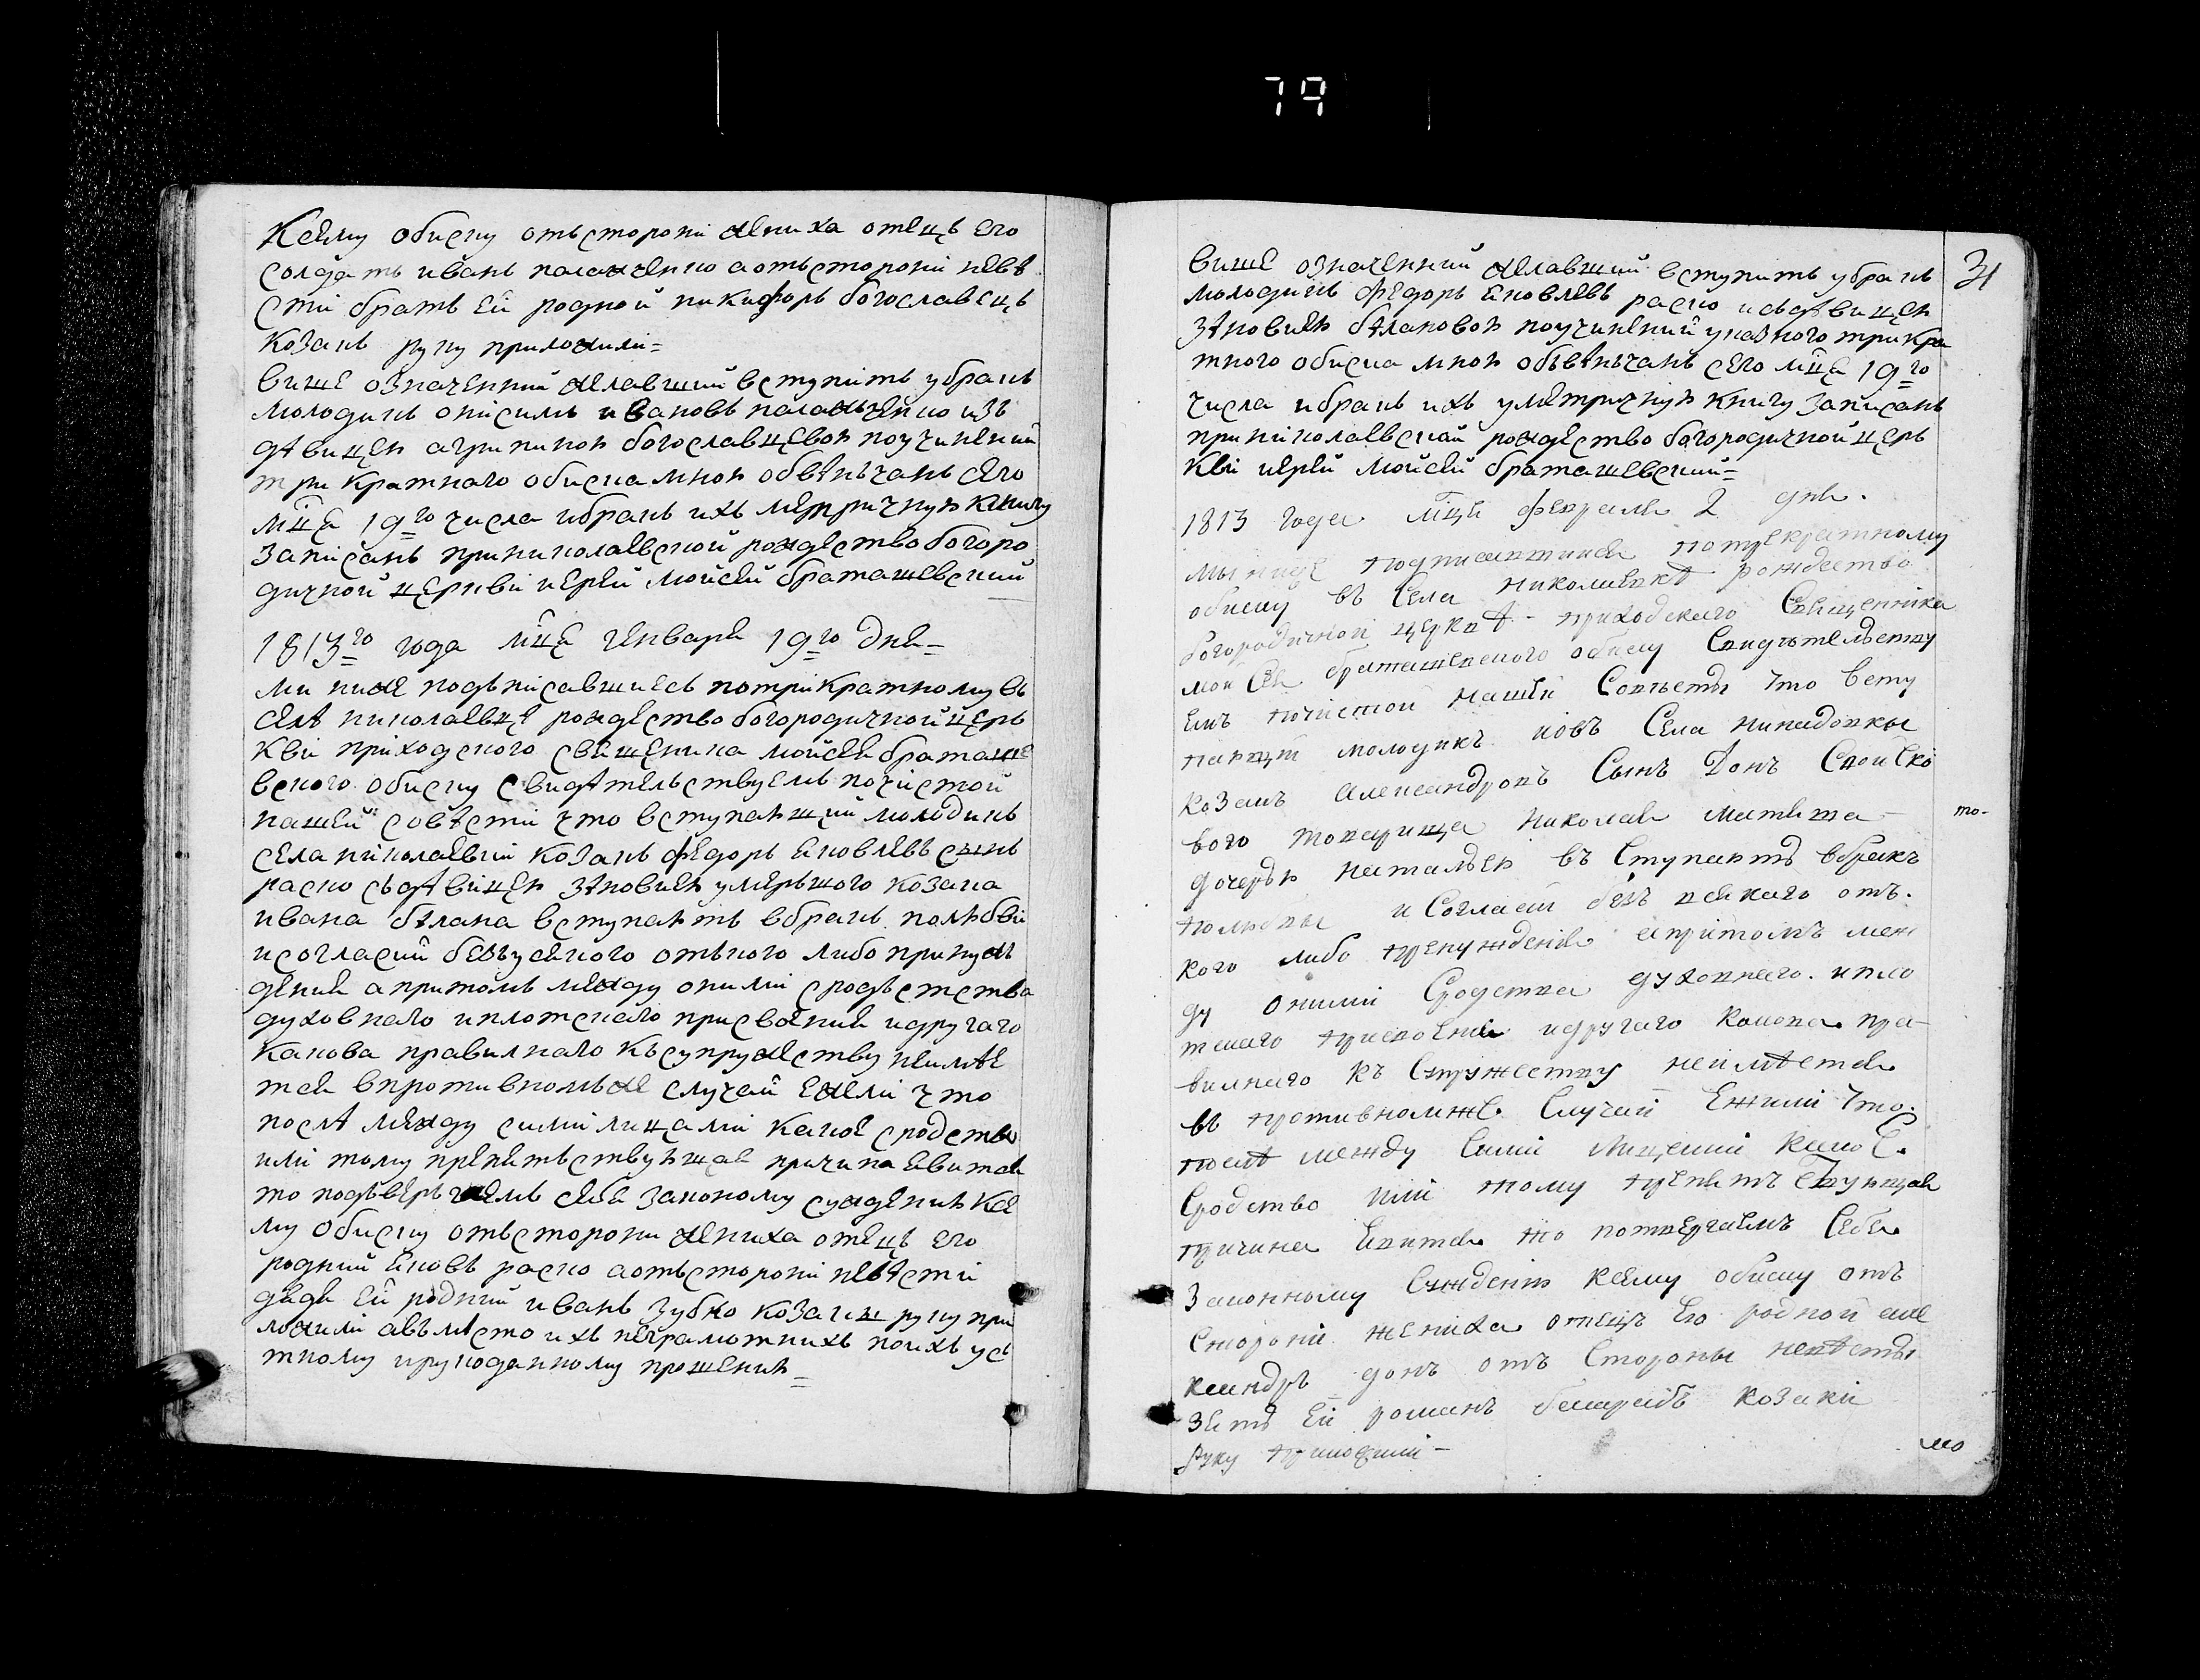 79
Ксему обиску отъ сторони жениха отецъ его
солдатъ иванъ палажченко а отъ сторони невѣ
сти братъ ей родной никифоръ богославецъ
козакъ руку приложили=
више означенний желавший вступить у бракъ
молодикъ онісимъ ивановъ палажченко изъ
дѣвицею агрипиною богославцевою поучинений
три кратнаго обиска мною обвѣнъчанъ сего
мца 19го числа и бракъ ихъ метричную книгу
записанъ при николаевской рождество богоро
дичной церкви иерей мойсей браташевский
1813го года мца генваря 19го дня=
ми ниже подъписавшиесь по трикратному въ
селѣ николаевце рождество богородичной церь
кви приходского священика мойсея браташе
вского обиску свидѣтельствуемъ по чистой
нашей совѣсти что вступающий молодикъ
села николаевки козакъ федоръ яковлевъ синъ
расно съ дѣвицею зѣновиею умерьшого козака
ивана бѣлана вступаютъ вбракъ полюбви
и согласий безъ усякого отъ кого либо принуж
дения а притомъ между оними сродъстства
духовнаго и плотскаго присвоения и другаго
какова правилнаго къ супружеству неимѣе
тся в противномъже случай ежели что
послѣ между сими лицами какое сродство
или тому препятьствующая причина явится
то подъверьгаемъ себя законому суждению ксе
му обиску отъ сторони жениха отецъ его
родний яковъ расно а отъ сторони невѣсти
дядя ей родний иванъ зубко козаки руку при
ложили авъмѣсто ихъ неграмотнихъ по ихъ ус
тному и рукоданному прошению=
31
више означенний желавший вступить у бракъ
молодикъ федоръ яковлевъ расно изъ дѣвицею
зѣновиею бѣлановою поучинений указного трикра
тного обиска мною обьвѣнъчанъ сего мца 19го
числа и бракъ ихъ уметричную книгу записанъ
при николаевской рождество богородичной церь
кви иерей мойсей браташевский=
1813 года мца февраля 2 дня.
мы ниже подписавшиися потрекратному
обиску въ села николаевкѣ рождество
богородичной церквѣ приходскаго Священника
мойСея браташевского обиску Свидѣтельству
емъ почистой нашей Совѣсты что всту
пающий молодикъ іовъ Села
козакъ александровъ Сынъ Донъ
вого товарища николая
то-
дочерью наталъею въ Ступаютъ вбракъ
полюбвы и Согласи безъ всякаго отъ.
кого либо принуждения апритомъ меж
ду оними Сродства духовнаго. и пло
тскаго присвоения идругаго какова пра-
вилнаго къ Супружеству неимѣется
въ противномже Случай Ежили что.
послѣ между Сими лицами какоЕ.
Сродство или тому препятъСтвующая
причина Евится то потвергаемъ Себя
Законному Суждению ксему обиску отъ
Стороны жениха отецъ его родной але
ксандръ донъ отъ Стороны невѣсты
зять ей романъ козаки
руку приложили-